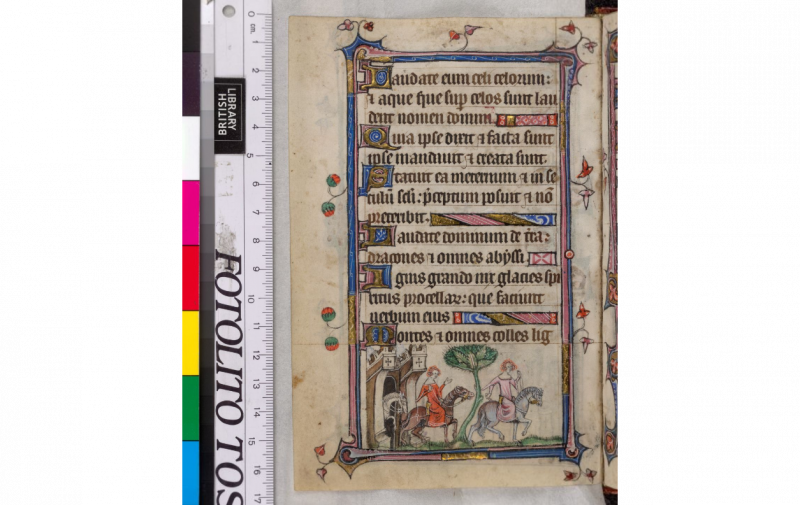 Laudate eum celi celorum:
⁊ aque que sup celos sunt lau
dent nomen domini
Quia ipse dixit ⁊ facta sunt
ipse mandauit ⁊ creata sunt
Statuit ea in eternum ⁊ in se
culū scli: p̄ceptum posuit ⁊ nō
preteribit.
Laudate dominum de t̄ra:
dracones ⁊ omnes abyssi
Ignis grando nix glacies spi
ritus procellaꝝ: que faciunt
uerbum eius
Montes ⁊ omnes colles lig
BRITISH
LIBRARY
FOTOLITO TOS
0 cm 1 2 3 4 5 6 7 8 9 10 11 12 13 14 15 16 17